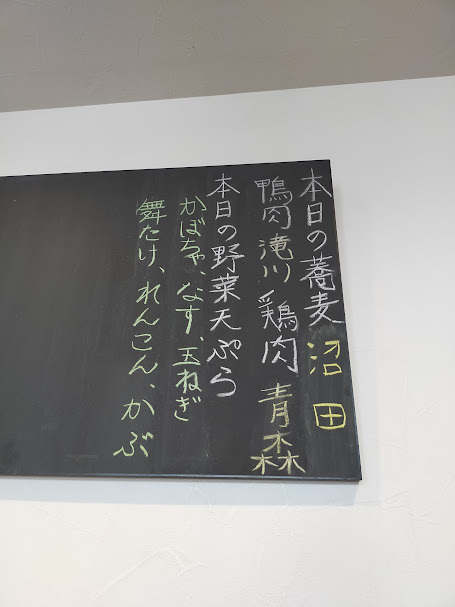 本日の蕎麦 沼田
鴨肉 滝川 鶏肉 青森
本日の野菜天ぷら
かぼちゃ、なす、玉ねぎ
舞たけ、れんこん、かぶ